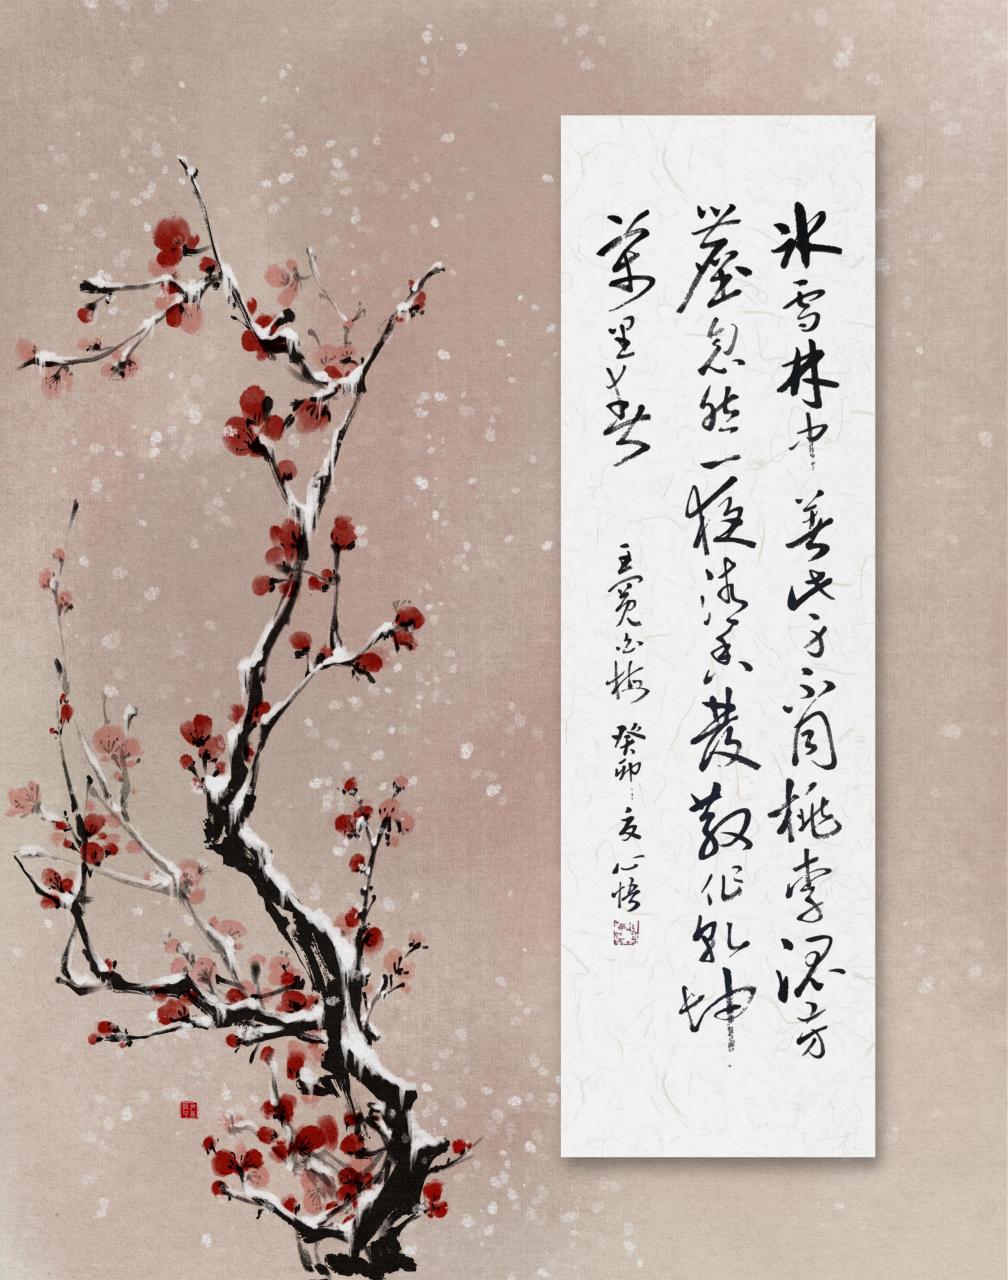 冰雪林中著此身不同桃李混芳
塵忽然一夜清香發散作乾坤
萬里春
王冕白梅 癸卯夏 心悟